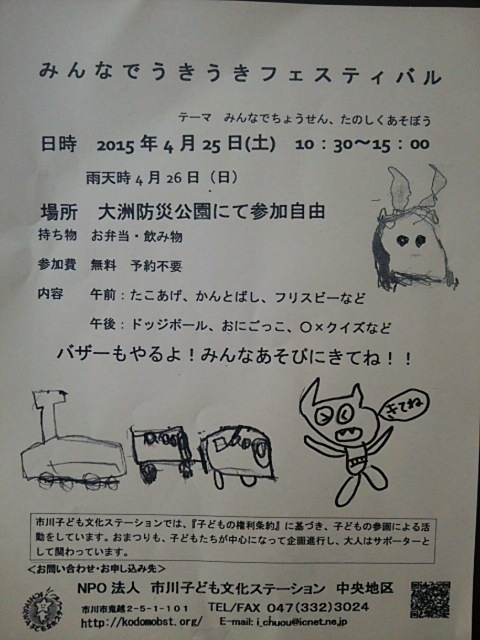 みんなでうきうきフェスティバル
テーマ　みんなでちょうせん、たのしくあそぼう
日時　2015年4月25日(土)　10：30～15：00
雨天時4月26日（日）
場所　大洲防災公園にて参加自由
持ち物　お弁当・飲み物
参加費　無料　予約不要
内容　午前：たこあげ、かんとばし、フリスビーなど
午後：ドッジボール、おにごっこ、〇×クイズなど
バザーもやるよ！みんなあそびにきてね！！
きてね
市川子ども文化ステーションでは、『子どもの権利条約』に基づき、子どもの参画による活
動をしています。おまつりも、子どもたちが中心になって企画進行し、大人はサポーターと
して関わっています。
＜お問い合わせ・お申し込み先＞
NPO法人　市川子ども文化ステーション　中央地区
市川市鬼越2-5-1-101　TEL/FAX 047(332)3024
http://kodomobst.org/　E-mail: i_chuou@icnet.ne.jp